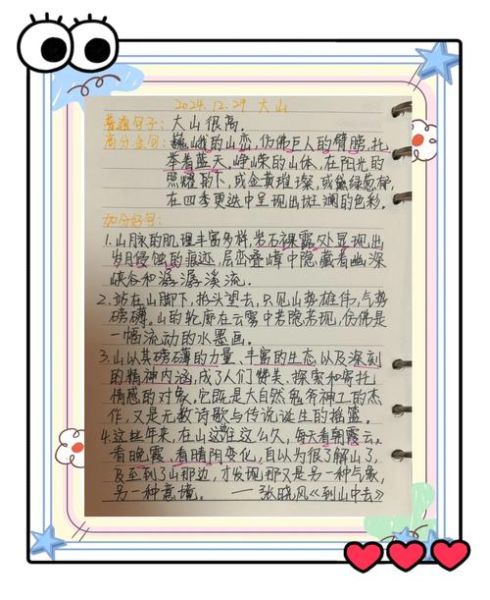 2024.12.29 大山
普通句子：大山很高。
高分金句：巍峨的山峦，仿佛巨人的臂膀，托
举着蓝天。峥嵘的山体，在阳光的
照耀的下，或金黄璀璨，或黛绿葱郁，
在四季更迭中呈现出斑斓的色彩。
加分好句：
1.山脉的肌理丰富多样，岩石裸露处显现出
岁月侵蚀的痕迹，层峦叠嶂中隐藏着幽深
峡谷和潺潺溪流．
2.站在山脚下，抬头望去，只见山势雄伟，气势
磅礴。山的轮廓在云雾中若隐若现，仿佛是
一幅流动的水墨画．
3.山以其磅礴的力量、丰富的生态以及深刻
的精神内涵，成了人们赞美、探索和寄托
情感的对象，它既是大自然鬼斧神工的杰
作，又是无数诗歌与传说诞生的摇篮．
4.这些年来，在山这住这么久，每天看朝霞云，
看晚霞，看晴阴变化，自以为很了解山了，
及至到了山那边，才发现那又是另一种气象，
另一种意境． ——张晓风《到山中去》